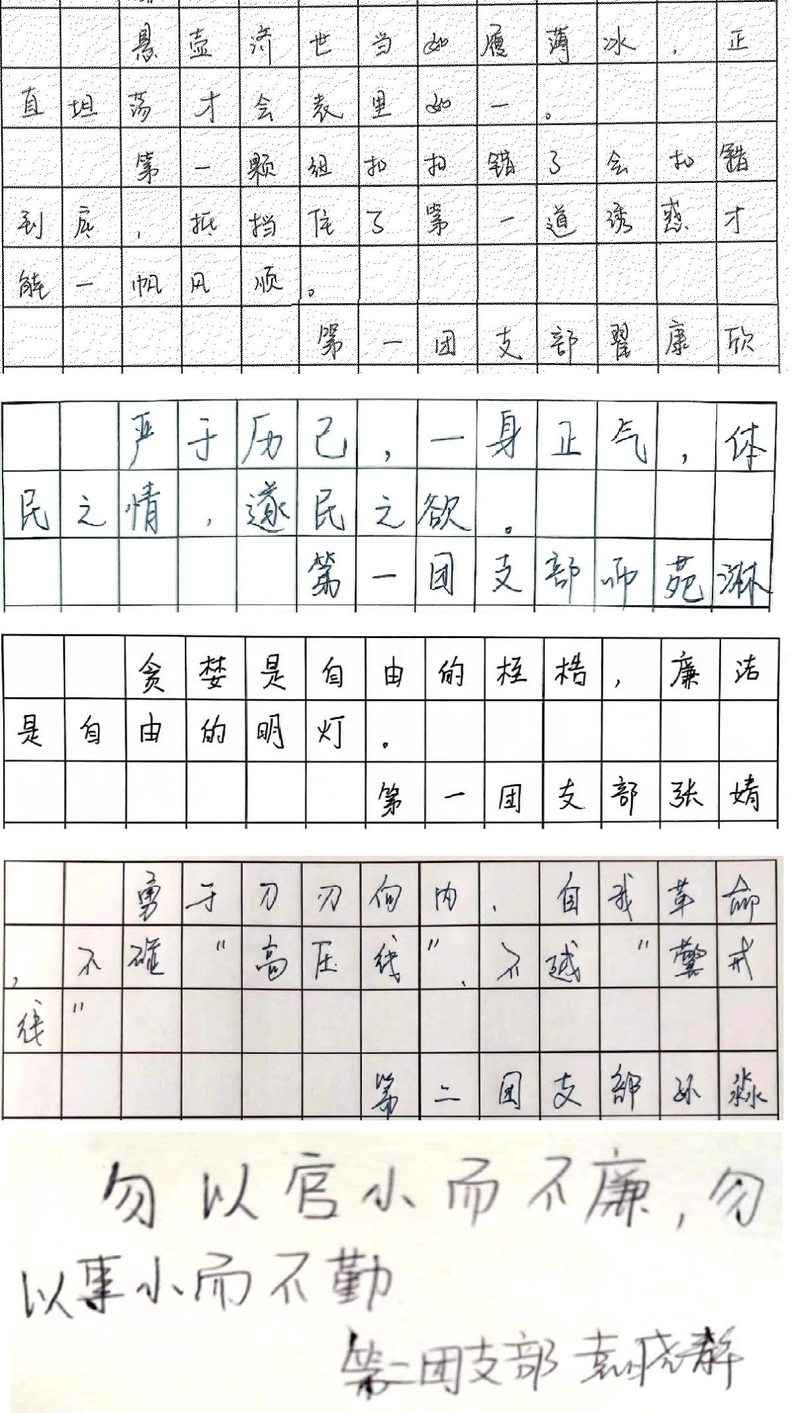 悬壶济世当如履薄冰，正
直坦荡才会表里如一。
第一颗纽扣扣错了会扣错
到底，抵挡住了第一道诱惑才
能一帆风顺。
第一团支部翟康欣
严于历己，一身正气，体
民之情，遂民之欲。
第一团支部师苑淋
贪婪是自由的桎梏，廉洁
是自由的明灯。
第一团支部张婧
勇于刀刃向内、自我革命
，不碰“高压线”、不越“警戒
线”
第二团支部孙淼
勿以官小而不廉，勿
以事小而不勤
第二团支部 袁晓静